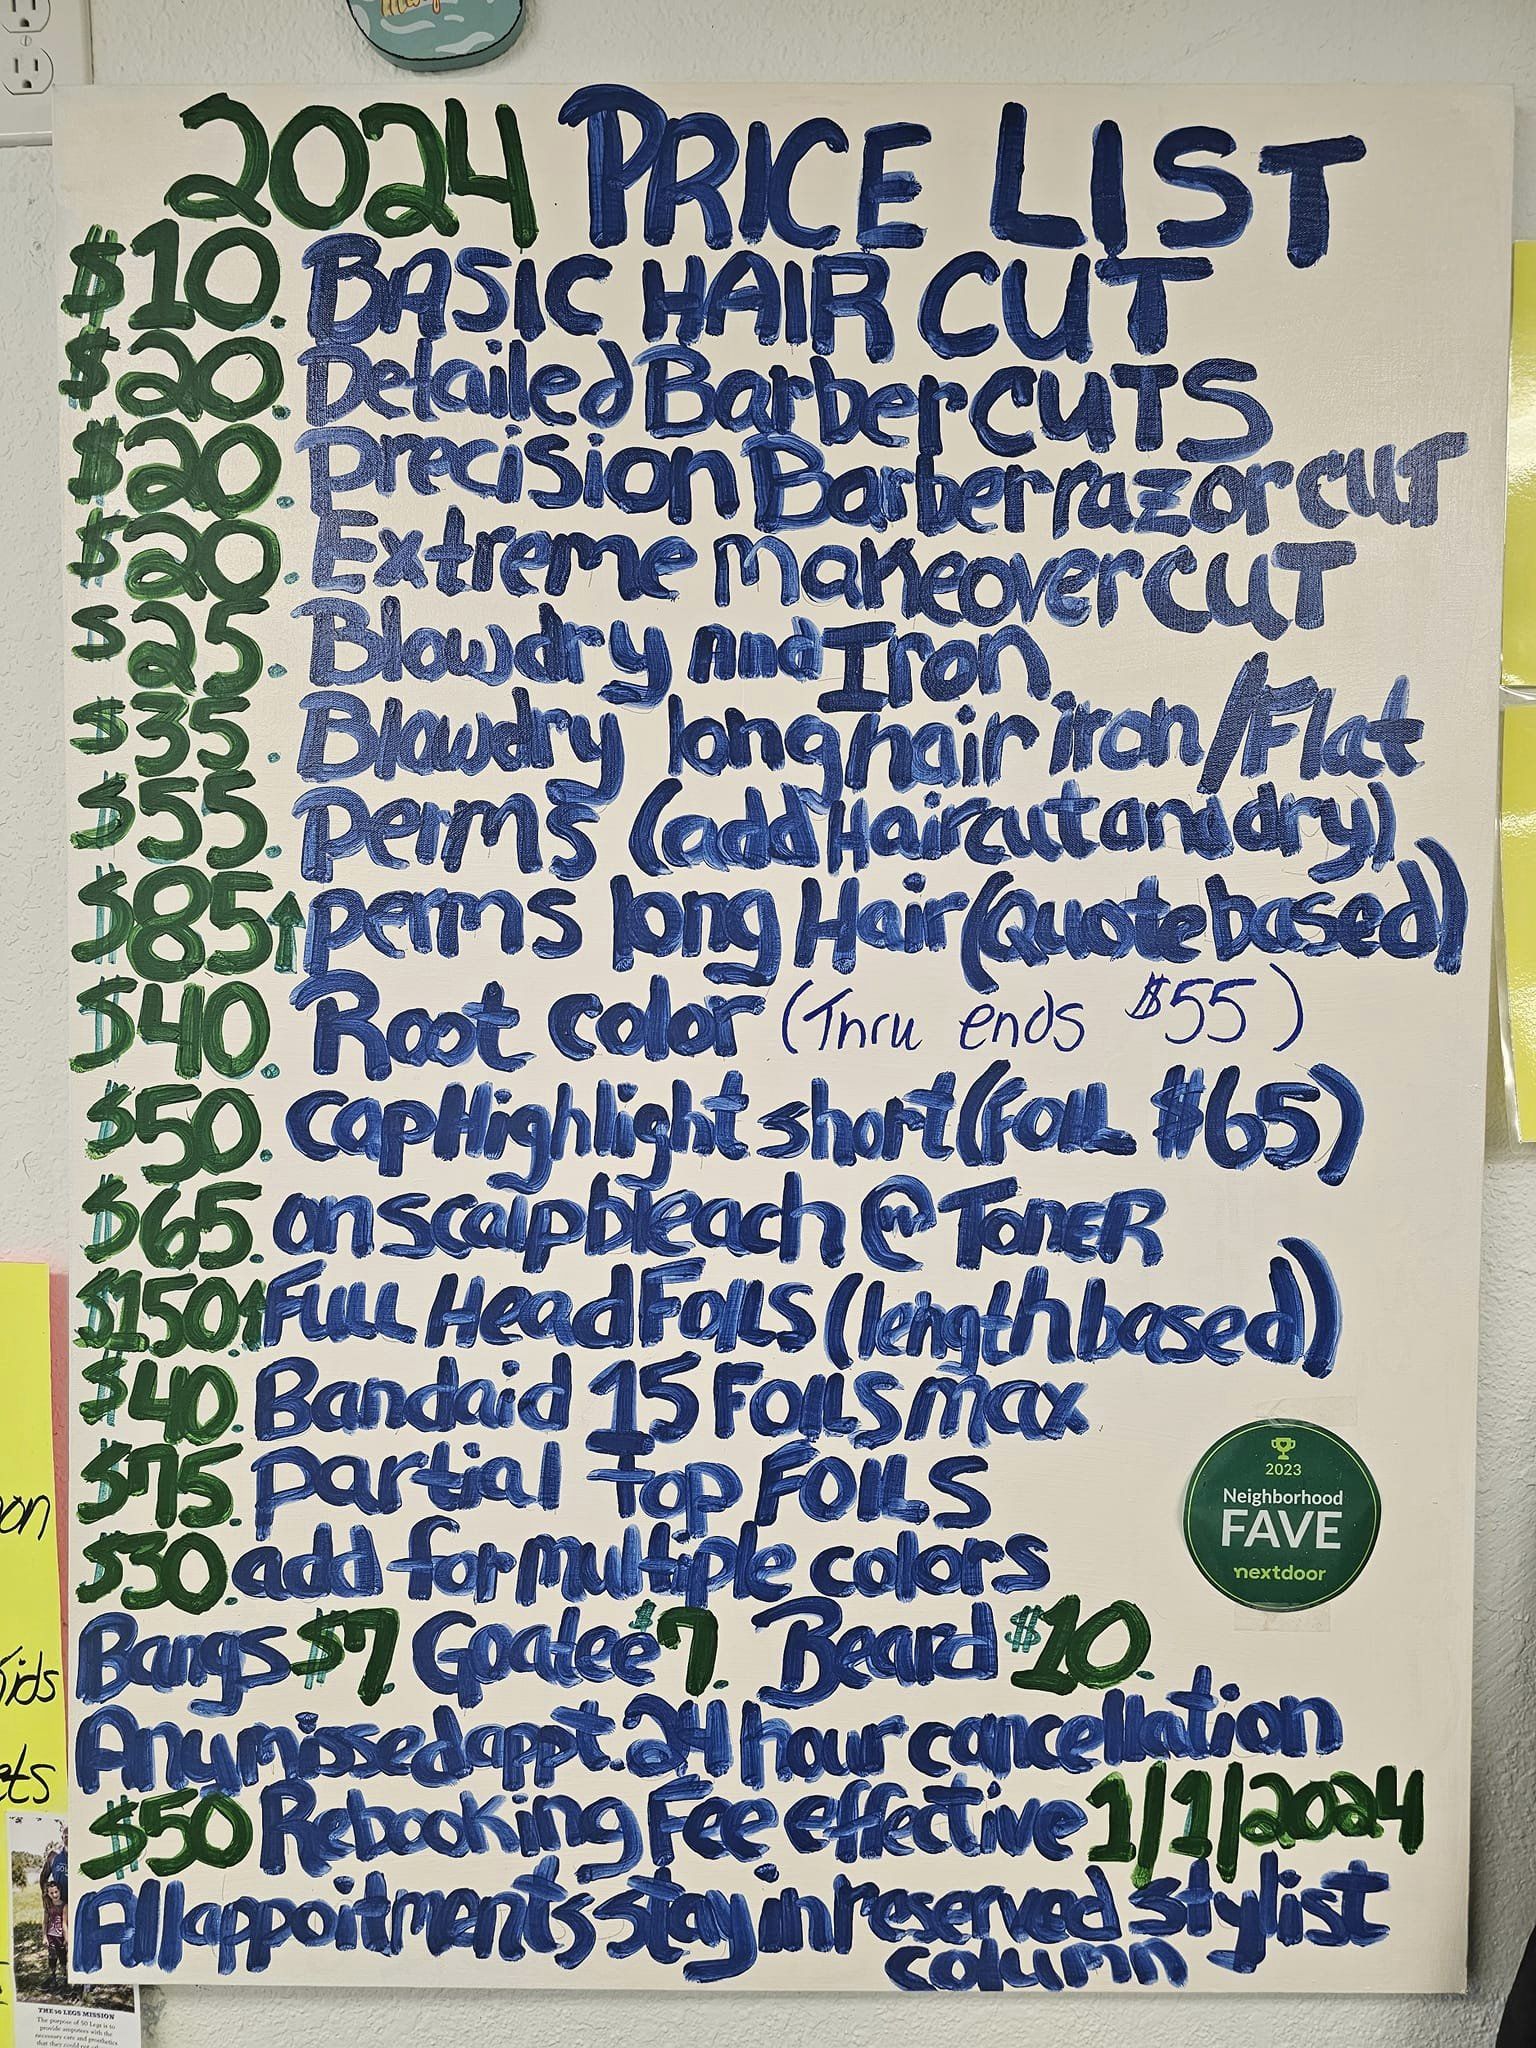 2024 PRICE LIST
$10. BASIC HAIR CUT
$20. Detailed Barber CUTS
$20. Precision Barber razor CUT
$20. Extreme Makeover CUT
$25. Blowdry And Iron
$35. Blowdry long hair iron/Flat
$55. perms (add Haircut and dry)
$85↑ perms long Hair (Quote based)
$40. Root color (Thru ends $55)
$50. Cap Highlight short (FOIL $65)
$65. on scalp bleach @ TONER
$150.↑ FULL Head FOILS (length based)
$40. Bandaid 15 FOILS max
$75. Partial Top FOILS
$30. add for multiple colors
Bangs $7. Goatee $7. Beard $10.
Any missed appt. 24 hour cancellation
$50 Rebooking Fee effective 1/1/2024
All appoitments stay in reserved stylist
column
2023
Neighborhood
FAVE
nextdoor
on
Kids
ets
THE 50 LEGS MISSION
The purpose of 50 Legs is to
provide amputees with the
necessary care and prosthetics
that they could not